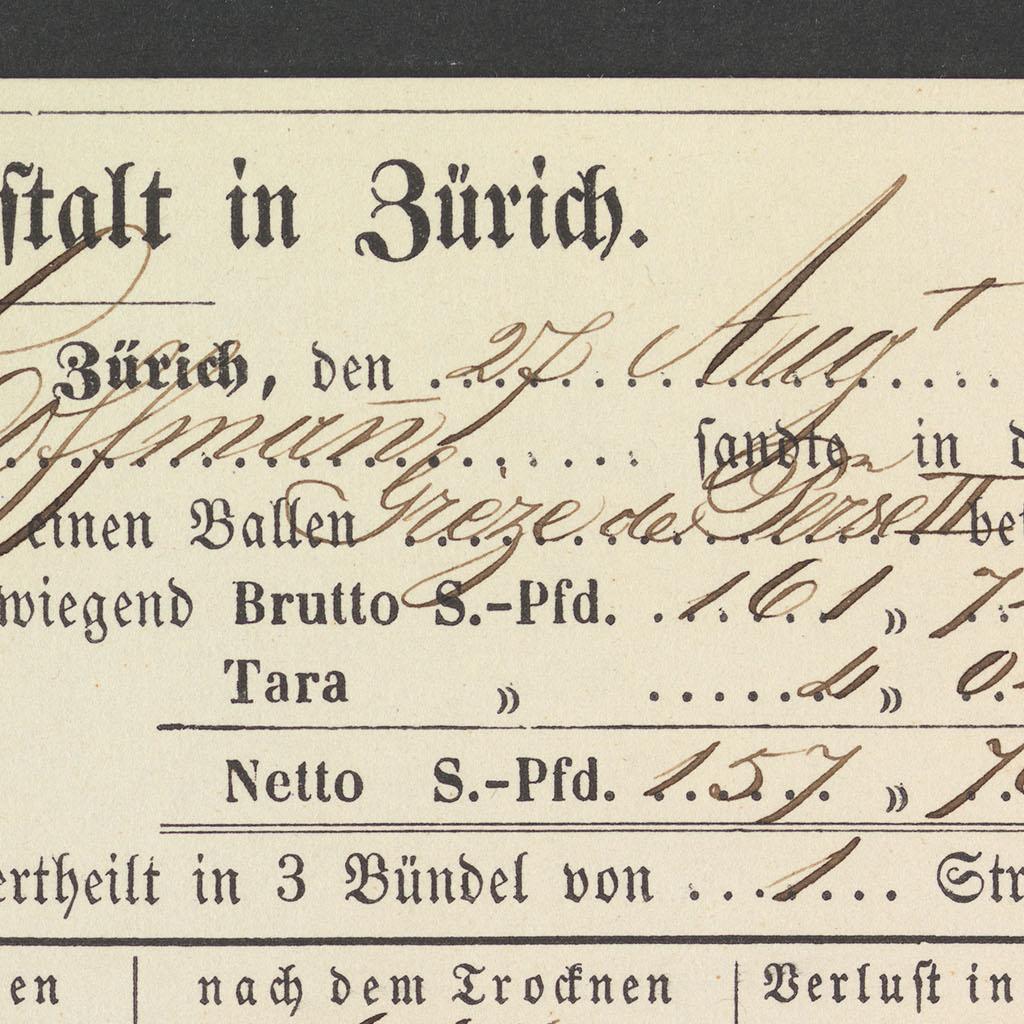 stalt in Zürich.
Zürich, den 27 Augt
sandte in
einen Ballen Grèze de Persett
wiegend Brutto S.-Pfd. 161 „ 7
Tara „ 4 „ 0.
Netto S.-Pfd. 157 „ 7
ertheilt in 3 Bündel von 1 Str
en nach dem Trocknen Verlust in